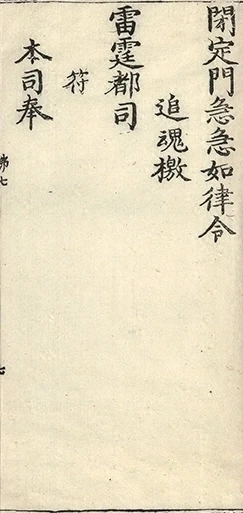 閉定門急急如律令
追魂檄
雷霆都司
符
本司奉
弟七
七